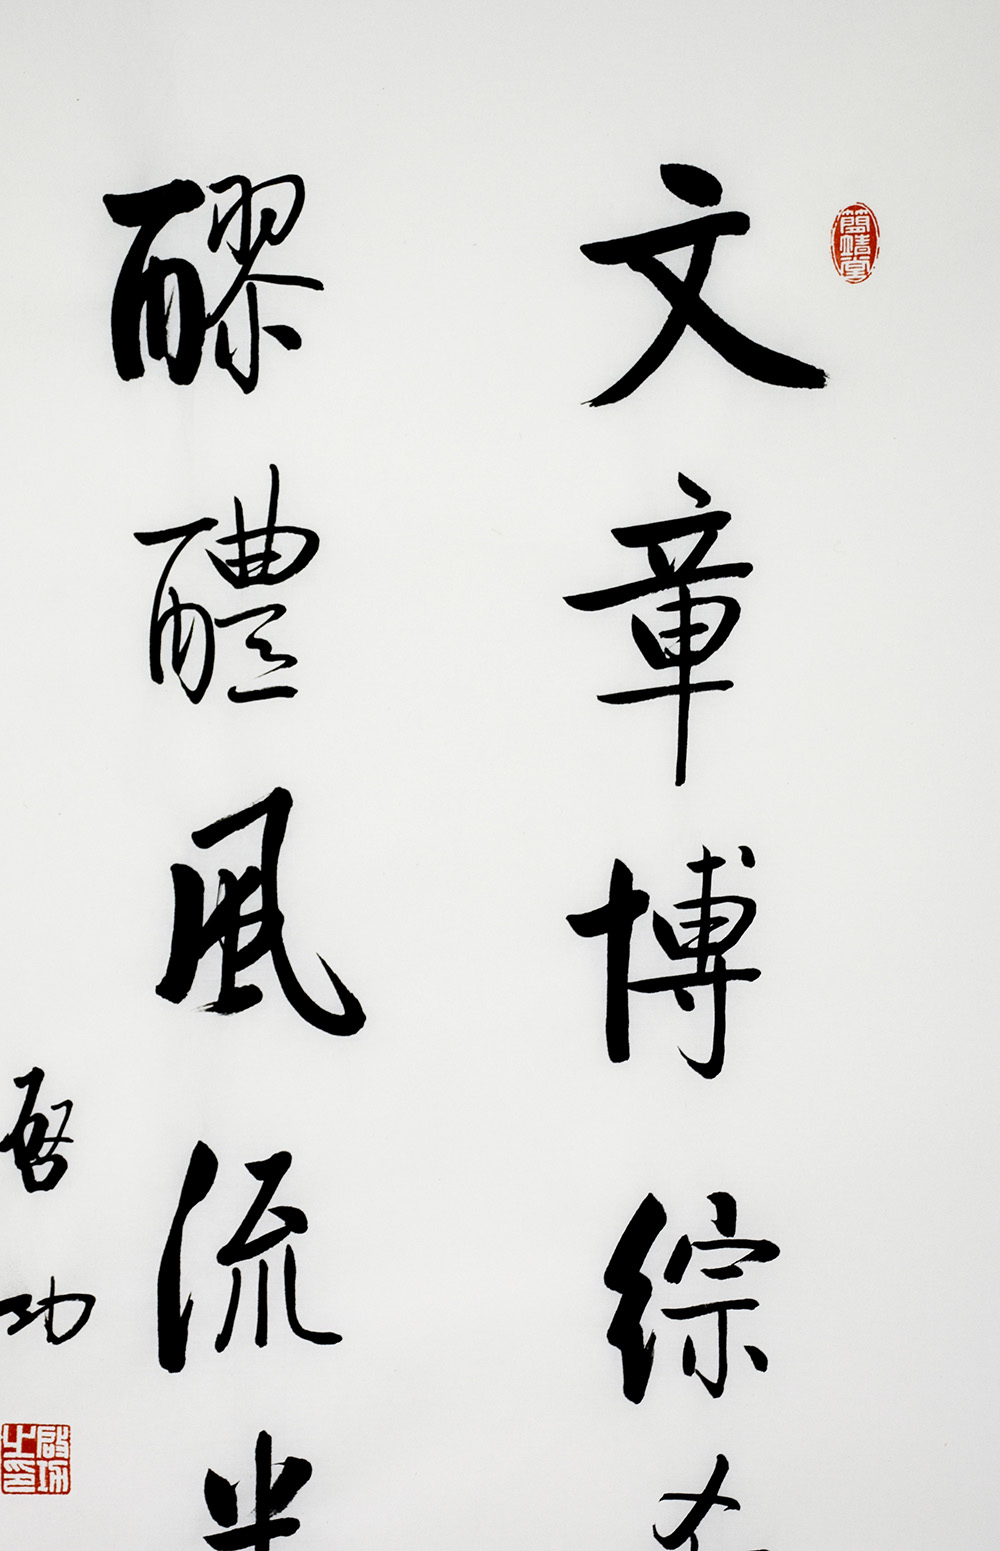 簡靖堂
文章博綜
醪醴風流
啓功
啟功之印